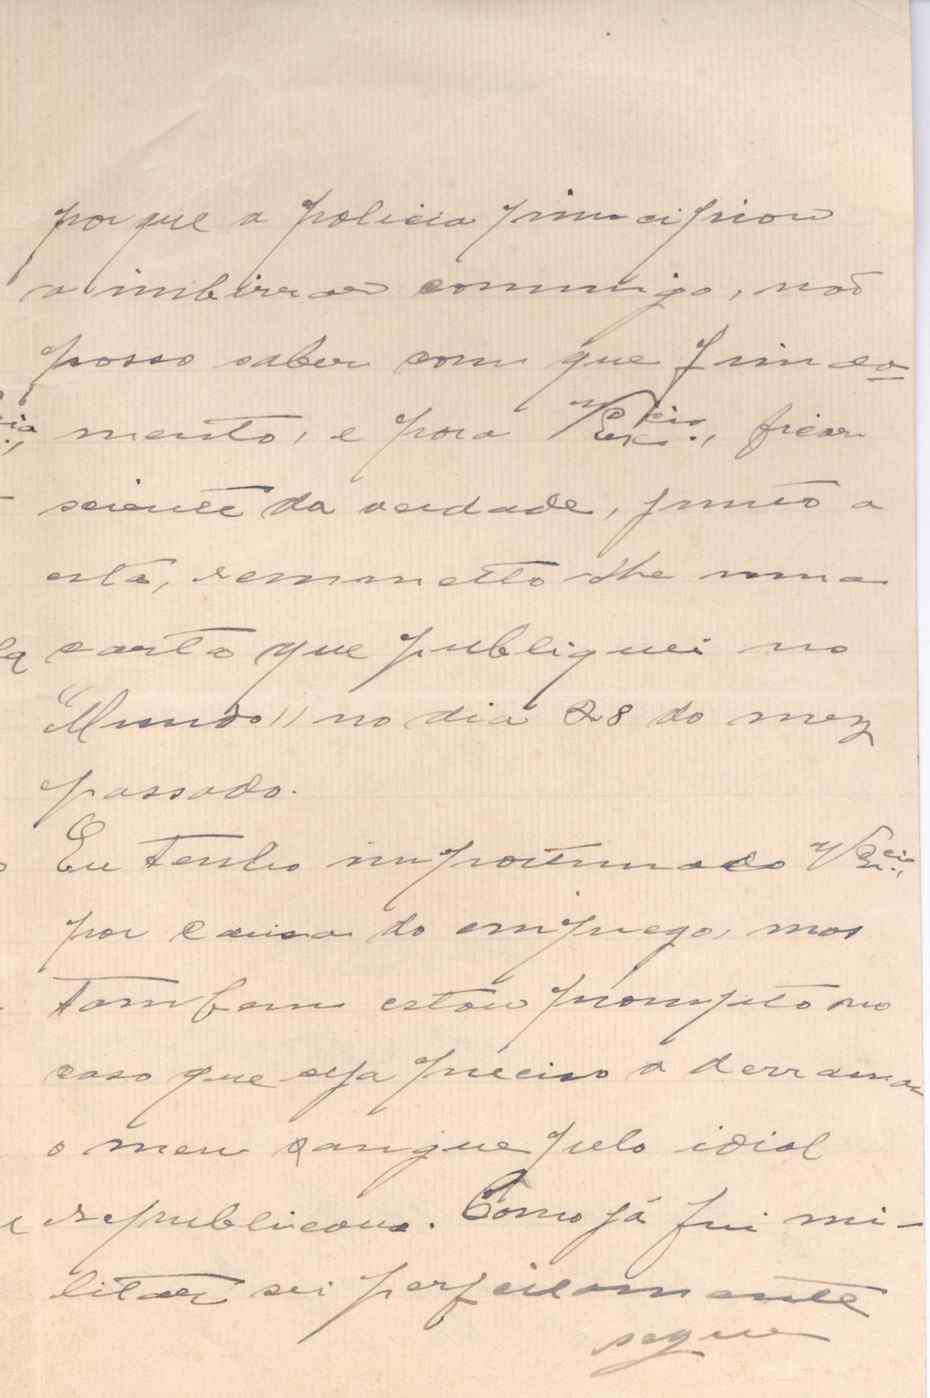 porque a policia principiou
a imbirrar commigo, não
posso saber com que funda-
mento, e para V. Ex.cia, ficar
sciente da verdade, junto a
esta, remmetto-lhe uma
carta que publiquei no
"Mundo" no dia 28 do mez
passado.
Eu tenho importunado V. Ex.cia,
por causa do emprego, mas
tambem estou prompto no
caso que seja preciso a derramar
o meu sangue pelo idial
republicano. Como já fui mi-
litar sei perfeitamente
segue